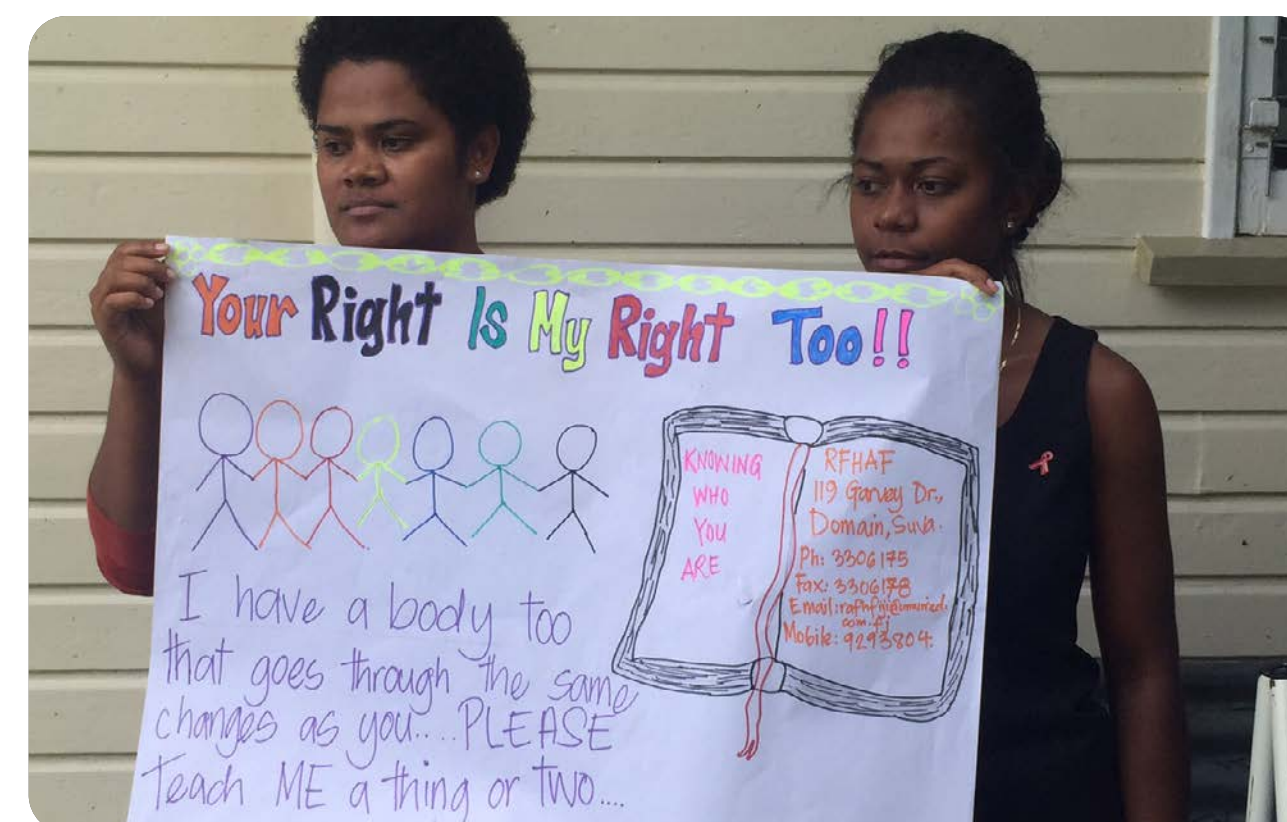 Your Right Is My Right Too!!
KNOWING
WHO
YOU
ARE
RFHAF
119 Garvey Dr.,
Domain, Suva.
Ph: 3306175
Fax: 3306178
com.fj
Mobile: 9293804.
I have a body too
that goes through the same
changes as you.... PLEASE
Teach ME a thing or two....